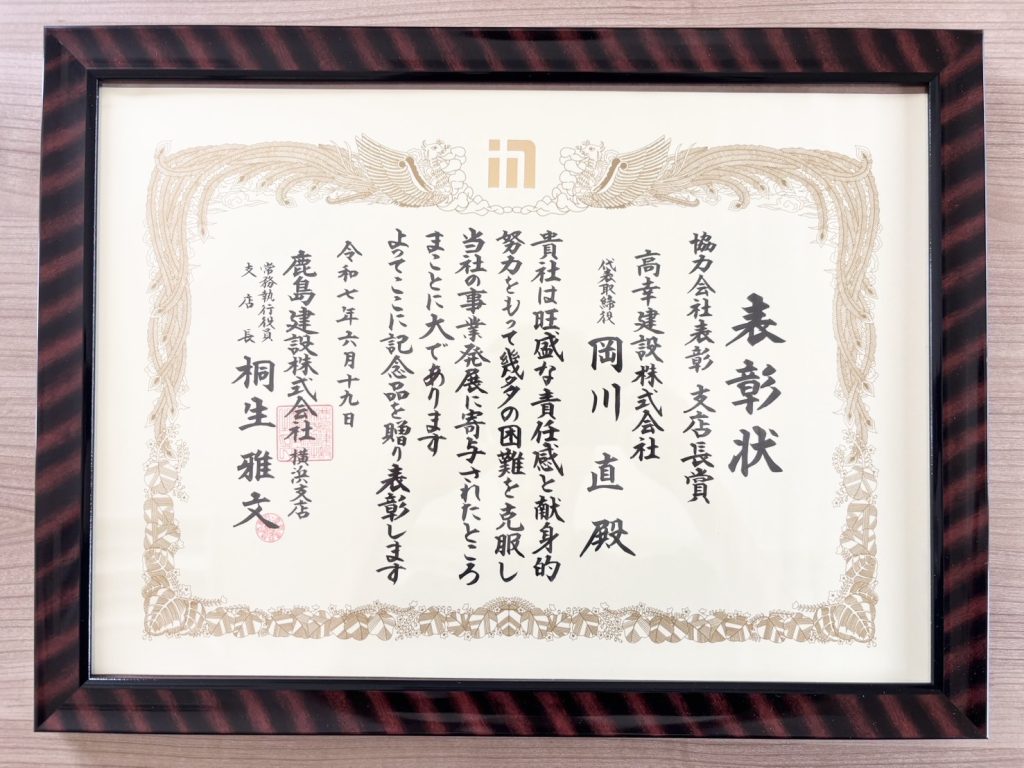 表彰状
協力会社表彰 支店長賞
高幸建設株式会社
代表取締役 岡川 直 殿
貴社は旺盛な責任感と献身的
努力をもって幾多の困難を克服し
当社の事業発展に寄与されたところ
まことに大であります
よってここに記念品を贈り表彰します
令和七年六月十九日
鹿島建設株式会社 横浜支店
常務執行役員
支店長 桐生雅文